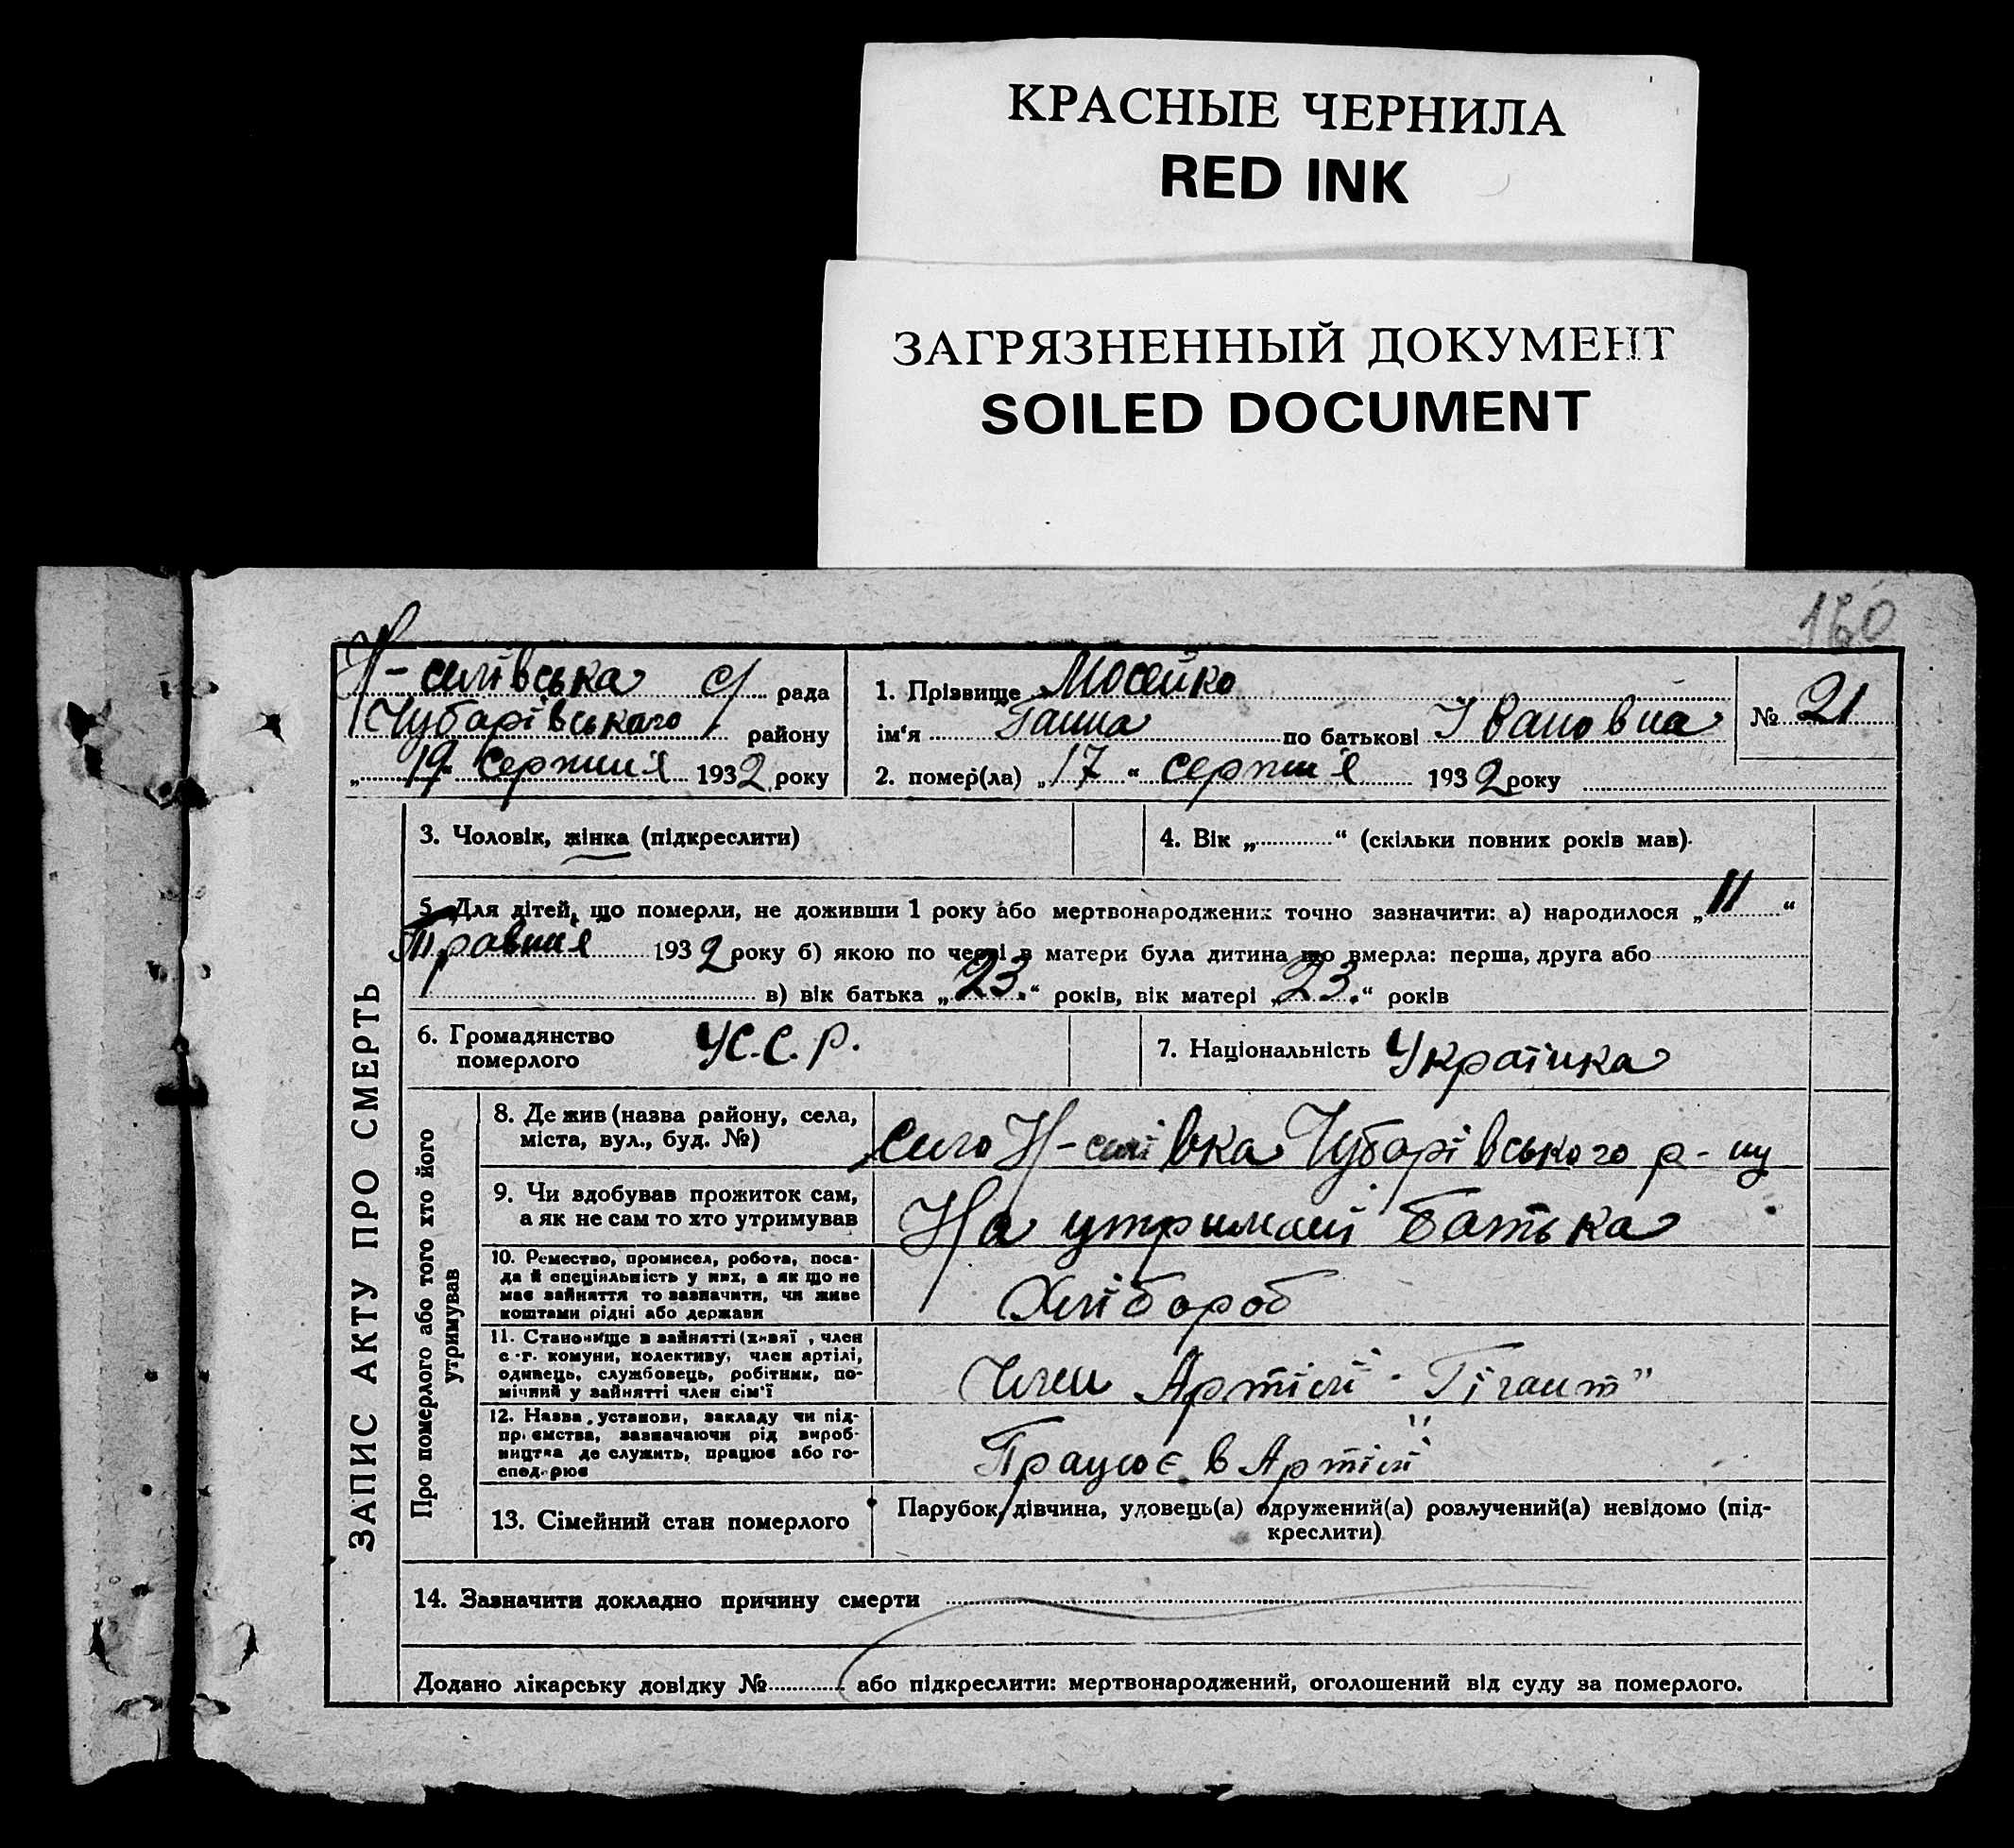 КРАСНЫЕ ЧЕРНИЛА
RED INK
ЗАГРЯЗНЕННЫЙ ДОКУМЕНТ
SOILED DOCUMENT
160
Н-силівська с/ рада
Чубарівського району
„19“ серпня 1932 року
1. Прізвище Мосейко
ім‘я Ганна по батькові Івановна
2. помер(ла) „17“ серпня 1932 року
№ 21
ЗАПИС АКТУ ПРО СМЕРТЬ
3. Чоловік, жінка (підкреслити)
4. Вік „ “ (скільки повних років мав).
5. Для дітей, що померли, не доживши 1 року або мертвонароджених точно зазначити: а) народилося „11“
Травня 1932 року б) якою по черзі в матери була дитина що вмерла: перша, друга або
в) вік батька „23.“ років, вік матері „23.“ років
6. Громадянство
померлого
УС.С.Р.
7. Національність Українка
Про померлого або того хто його
утримував
8. Де жив (назва району, села,
міста, вул., буд. №)
Село Н-силівка Чубарівського р-ну
9. Чи здобував прожиток сам,
а як не сам то хто утримував
На утримані батька
10. Ремество, промисел, робота, поса-
да й спеціяльність у них, а як що не
має зайняття то зазначити, чи живе
коштами рідні або держави
Хлібороб
11. Становище в зайнятті (хазяї , член
с.-г. комуни, колективу, член артілі,
одинець, службовець, робітник, по-
мічний у зайнятті член сім'ї
Член Артілі "Гігант"
12. Назва установи, закладу чи під-
приємства, зазначаючи рід вироб-
ництва де служить, працює або го-
сподарює
Працює в Артілі
13. Сімейний стан померлого
Парубок, дівчина, удовець(а) одружений(а) розлучений(а) невідомо (під-
креслити)
14. Зазначити докладно причину смерти
Додано лікарську довідку № або підкреслити: мертвонароджений, оголошений від суду за померлого.